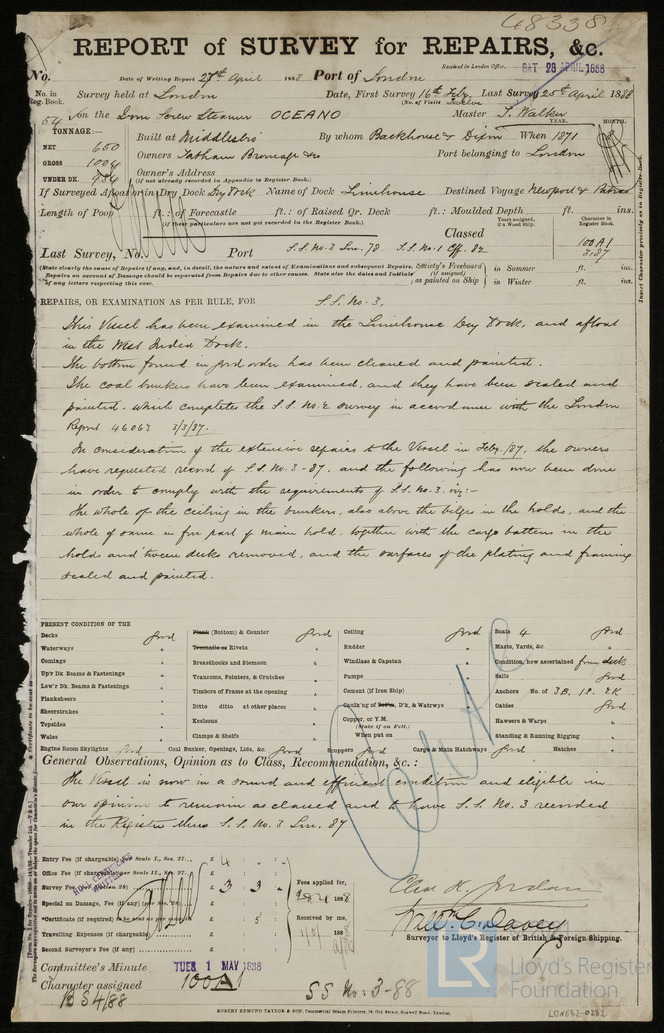 48338
REPORT of SURVEY for REPAIRS, &c.
Received in London Office, SAT 28 APRIL 1888
No. Date of Writing Report 27th April 1888 Port of London
No. in Reg. Book. Survey held at London Date, First Survey 16th Feby. Last Survey 25th April 1888
(No. of Visits Twelve
54 on the Iron Screw Steamer OCEANO Master J. Walker
TONNAGE:— YEAR. MONTH.
NET 650 Built at Middlesbro' By whom Backhouse & Dixon When 1871
GROSS 1004 Owners Tatham Bromage & Co Port belonging to London
UNDER DK. 954 Owner's Address
(if not already recorded in Appendix to Register Book.)
If Surveyed Afloat or in Dry Dock Dry Dock Name of Dock Limehouse Destined Voyage Newport &
Length of Poop ft.: of Forecastle ft.: of Raised Qr. Deck ft.: Moulded Depth ft. ins.
(if these particulars are not yet recorded in the Register Book.)
Years assigned, if a Wood Ship. Character in Register Book.
Classed 100 A1
3,87
Last Survey, No. Port S.S. No. 3 Lon. 78. S.S. No. 1 Cff. 82
(State clearly the cause of Repairs if any, and, in detail, the nature and extent of Examinations and subsequent Repairs. Repairs on account of Damage should be separated from Repairs due to other causes. State also the dates and initials of any letters respecting this case.
Society's Freeboard (if assigned) as painted on Ship in Summer ft. ins.
in Winter ft. ins.
Insert Character precisely as in Register Book.
REPAIRS, OR EXAMINATION AS PER RULE, FOR S.S. No. 3,
This Vessel has been examined in the Limehouse Dry Dock, and afloat
in the West India Dock.
The bottom found in good order has been cleaned and painted.
The coal bunkers have been examined, and they have been scaled and
painted. which completes the S.S. No. 2 survey in accordance with the London
Report 46062 3/3/87.
In consideration of the extensive repairs to the Vessel in Feby. /87, the owners
have requested record of S.S. No. 3-87, and the following has now been done
in order to comply with the requirements of S.S. No. 3. viz:-
The whole of the ceiling in the bunkers, also above the bilges in the holds, and the
whole of same in fore part of main hold, together with the cargo battens in the
holds and 'tween decks removed, and the surfaces of the plating and framing
scaled and painted.
PRESENT CONDITION OF THE
Decks good Plank (Bottom) & Counter good Ceiling good Boats 4 good
Waterways " Treenails or Rivets " Rudder " Masts, Yards, &c. "
Comings " Breasthooks and Stemson " Windlass & Capstan " Condition, how ascertained from deck
Up'r Dk. Beams & Fastenings " Transoms, Pointers, & Crutches " Pumps " Sails good
Low'r Dk. Beams & Fastenings " Timbers of Frame at the opening Cement (if Iron Ship) " Anchors No. of 3B. 1S. 2K
Planksheers Ditto ditto at other places " Caulk'ng of Bot'm, D'k, & Watrwys " Cables good
Sheerstrakes " Keelsons " Copper, or Y.M. Hawsers & Warps "
Topsides " Clamps & Shelfs (State if on Felt.) Standing & Running Rigging "
Wales " When put on
Engine Room Skylights good Coal Bunker, Openings, Lids, &c. good Scuppers good Cargo & Main Hatchways good Hatches "
General Observations, Opinion as to Class, Recommendation, &c. :
The Vessel is now in a sound and efficient condition and eligible in
our opinion to remain as classed and to have S.S. No. 3 recorded
in the Register thus S.S. No. 3 Lon. 87
Entry Fee (if chargeable) per Scale I., Sec. 27... £ 4 : :
Office Fee (if chargeable) per Scale II., Sec. 27... £ : :
Survey Fee £ 3 : 3 :
Special on Damage, Fee (if any) £ : :
Certificate (if required) £ : 5 :
Travelling Expenses (if chargeable) £ : :
Second Surveyor's Fee (if any) £ : :
Fees applied for,
1888
Received by me,
188
Chas. R. Jordan
Wm. C. Davey
Surveyor to Lloyd's Register of British & Foreign Shipping.
Committee's Minute TUES 1 MAY 1888
Character assigned 100 A1
SS No. 3-88
ROBERT EDMUND TAYLOR & SON, Commercial Steam Printers, 19, Old Street, Goswell Road, London.
LR Lloyd's Register Foundation
LON682-0282